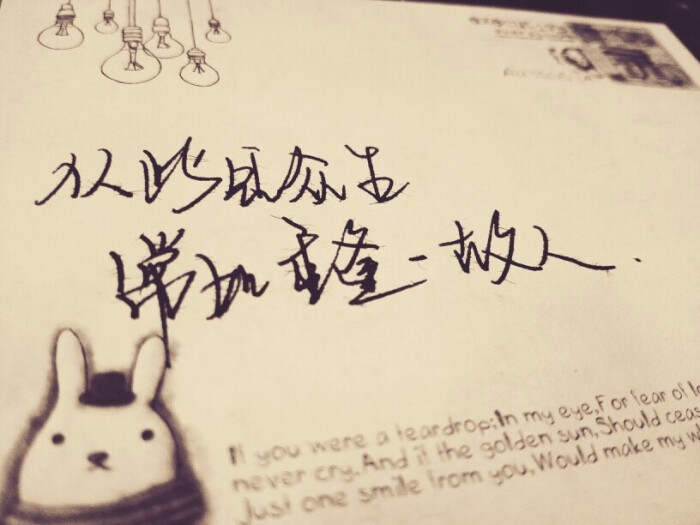 从此见众生
常如重逢一故人.
If you were a teardrop;In my eye,For fear of
never cry.And if the golden sun,Should
Just one smile from you,Would make my